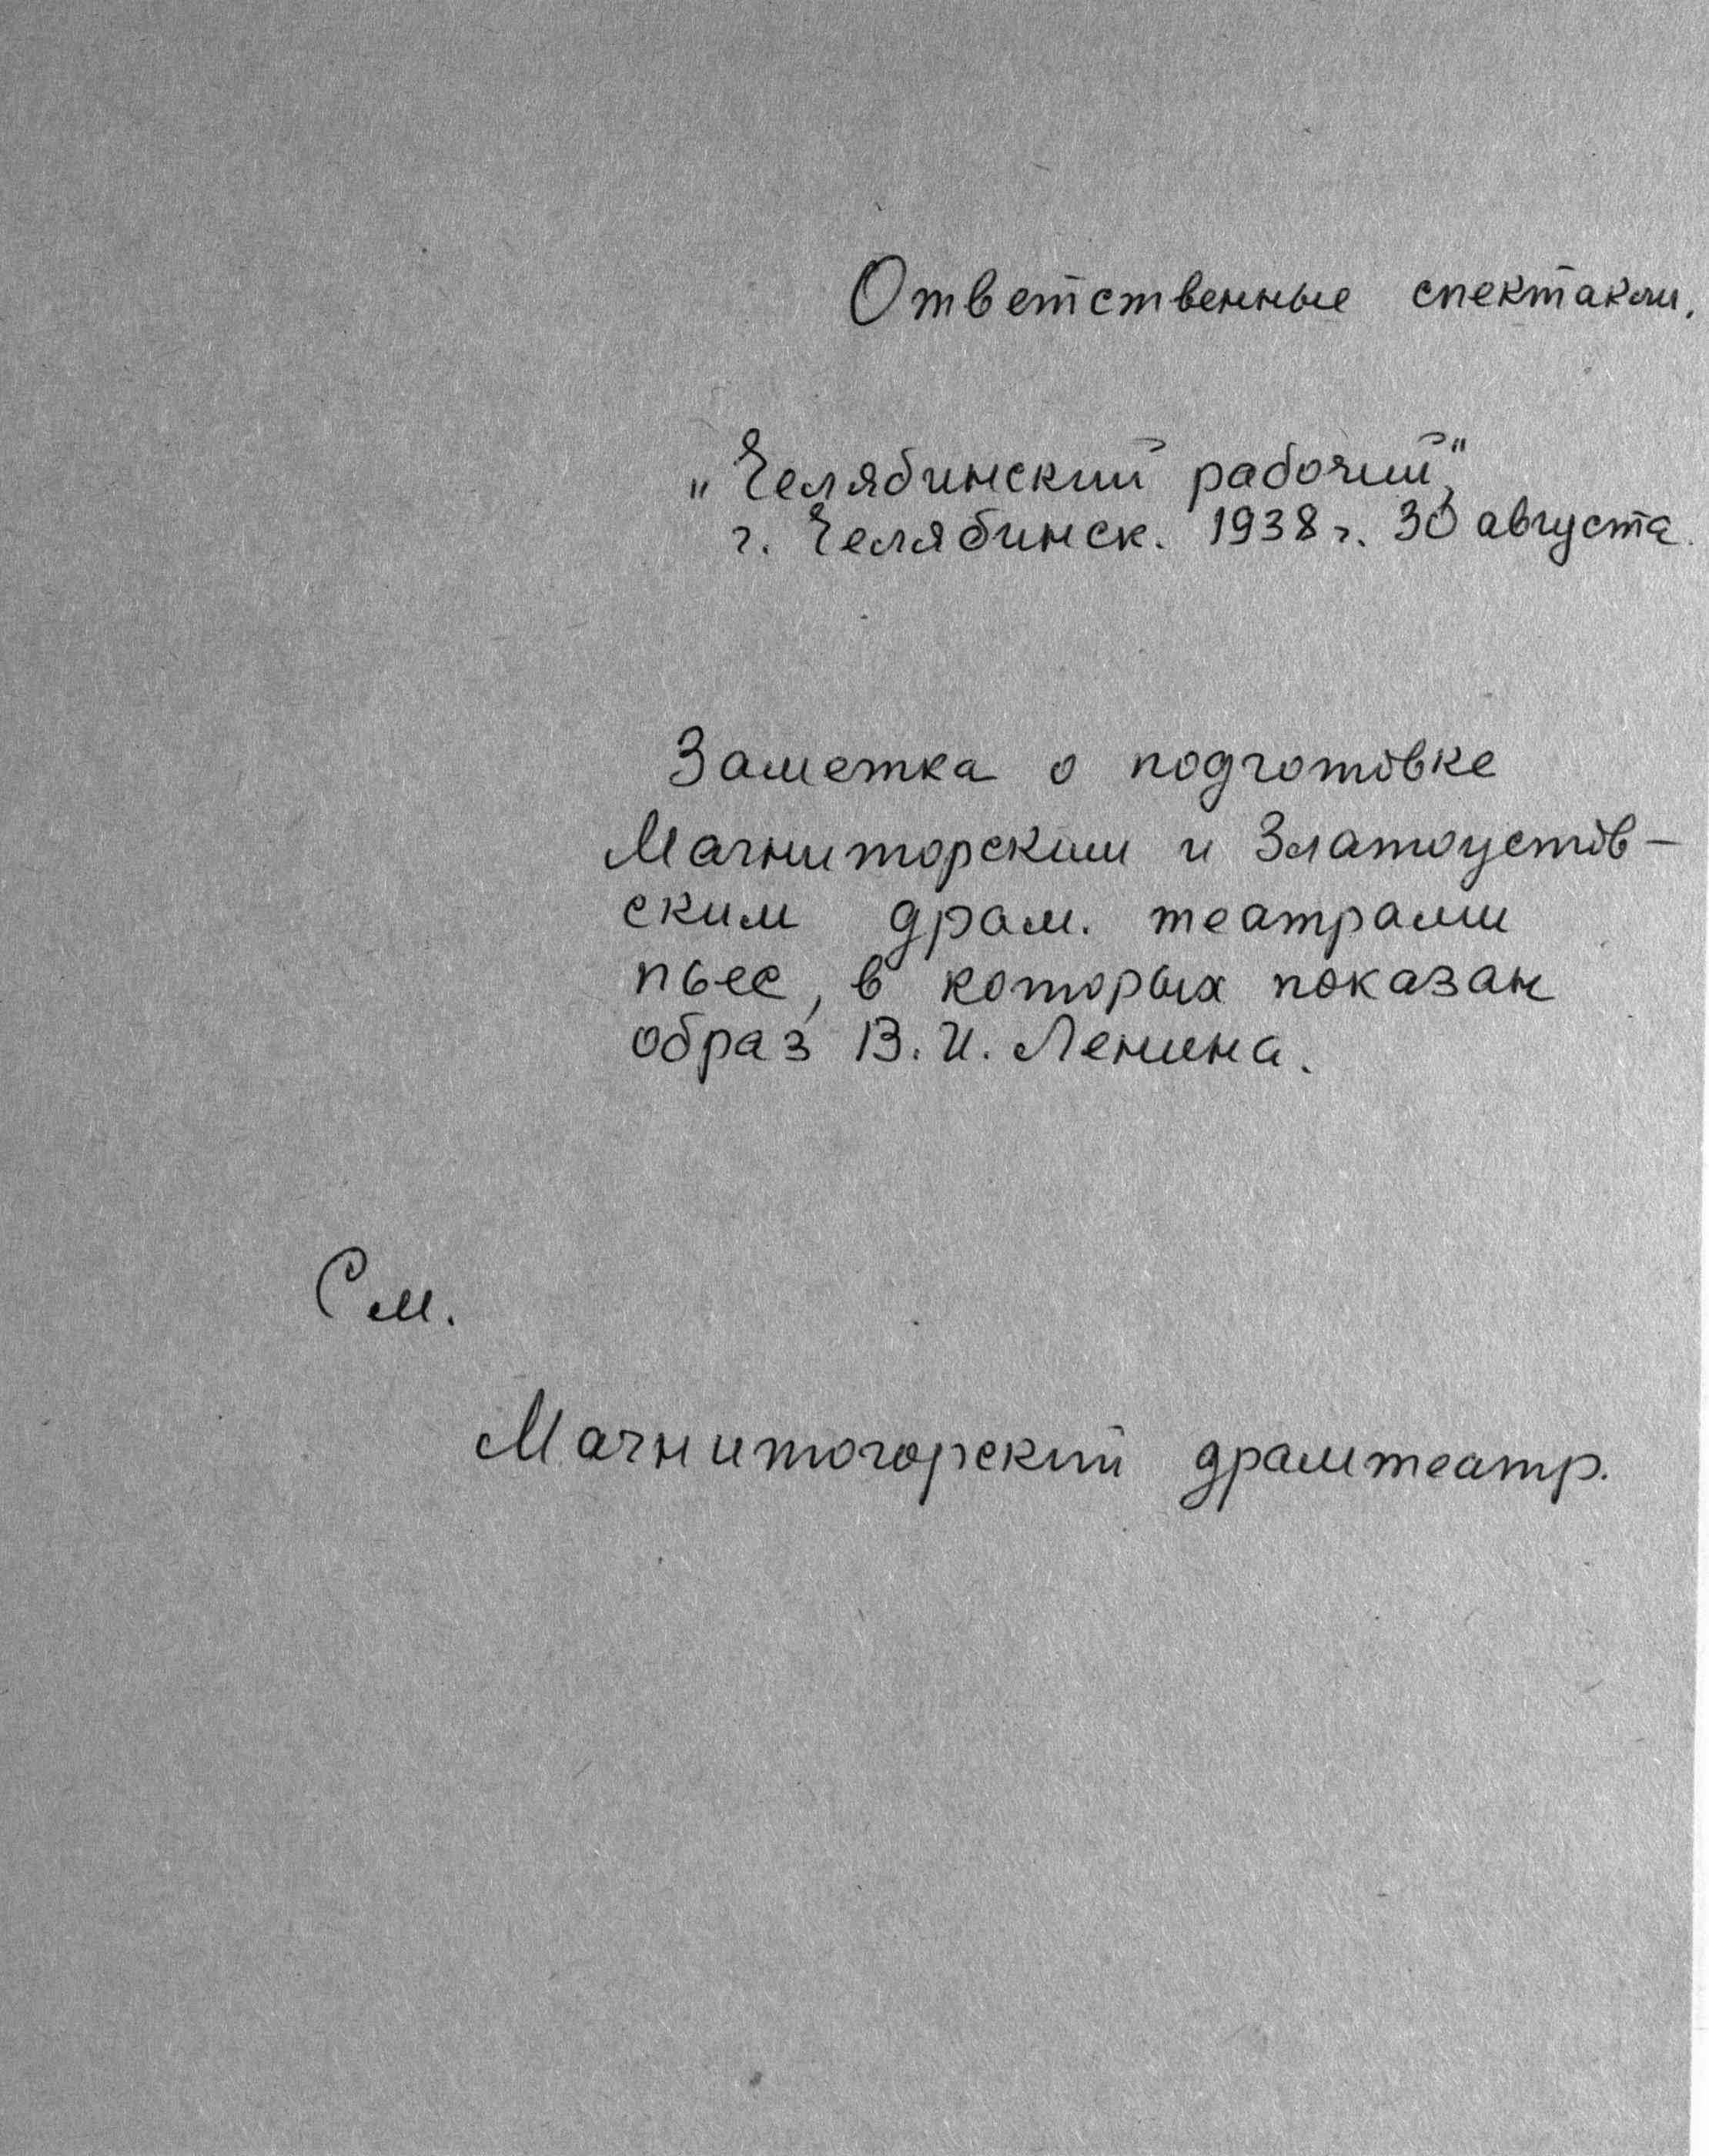 Ответственные спектакли.
„Челябинский рабочий",
г. Челябинск. 1938 г. 30 августа.
Заметка о подготовке
Магниторским и Златоустов-
ским драм. театрами
пьес, в которых показан
образ В. И. Ленина.
См.
Магнитогорский драмтеатр.